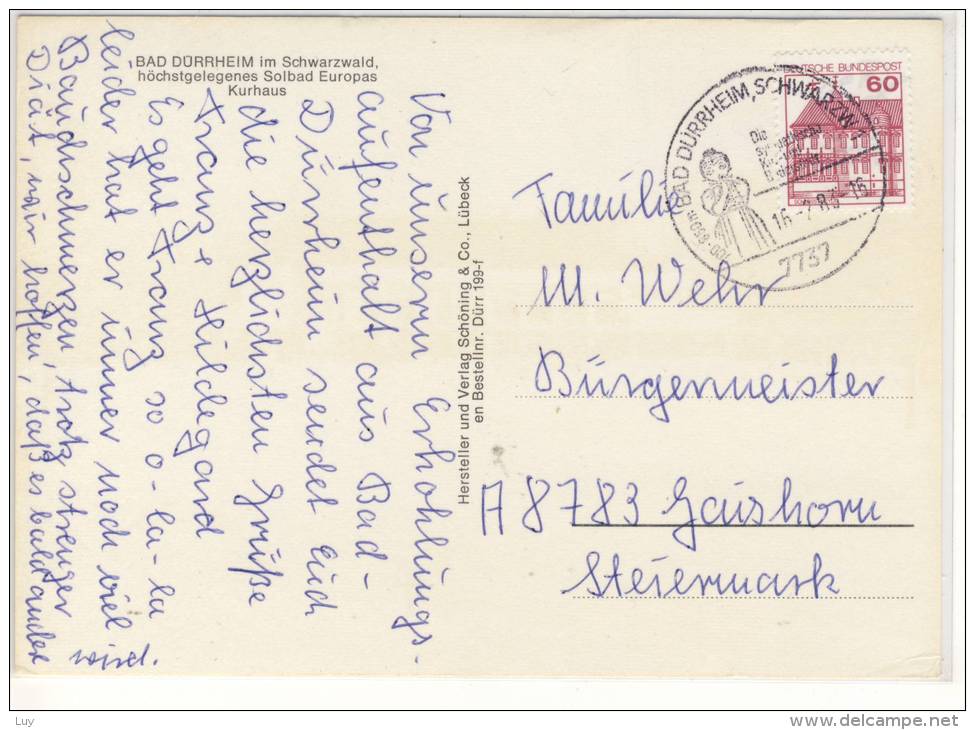 BAD DÜRRHEIM im Schwarzwald,
höchstgelegenes Solbad Europas
Kurhaus
Von unserm Erholungs-
aufenthalt aus Bad-
Dürrheim sendet Euch
die herzlichsten Grüße
Franz + Hildegard
Es geht Franz so o-la-la
leider hat er immer noch viel
Bauchschmerzen, trotz strenger
Diät, wir hoffen, daß es bald anders
wird.
Hersteller und Verlag Schöning & Co., Lübeck
en Bestellnr. Dürr 199-f
DEUTSCHE BUNDESPOST
60
BAD DÜRRHEIM, SCHWARZW. 1
Die
700-850m
7737
Familie
M. Wehr
Bürgermeister
A 8783 Gaishorn
Steiermark
Luy
www.delcampe.net